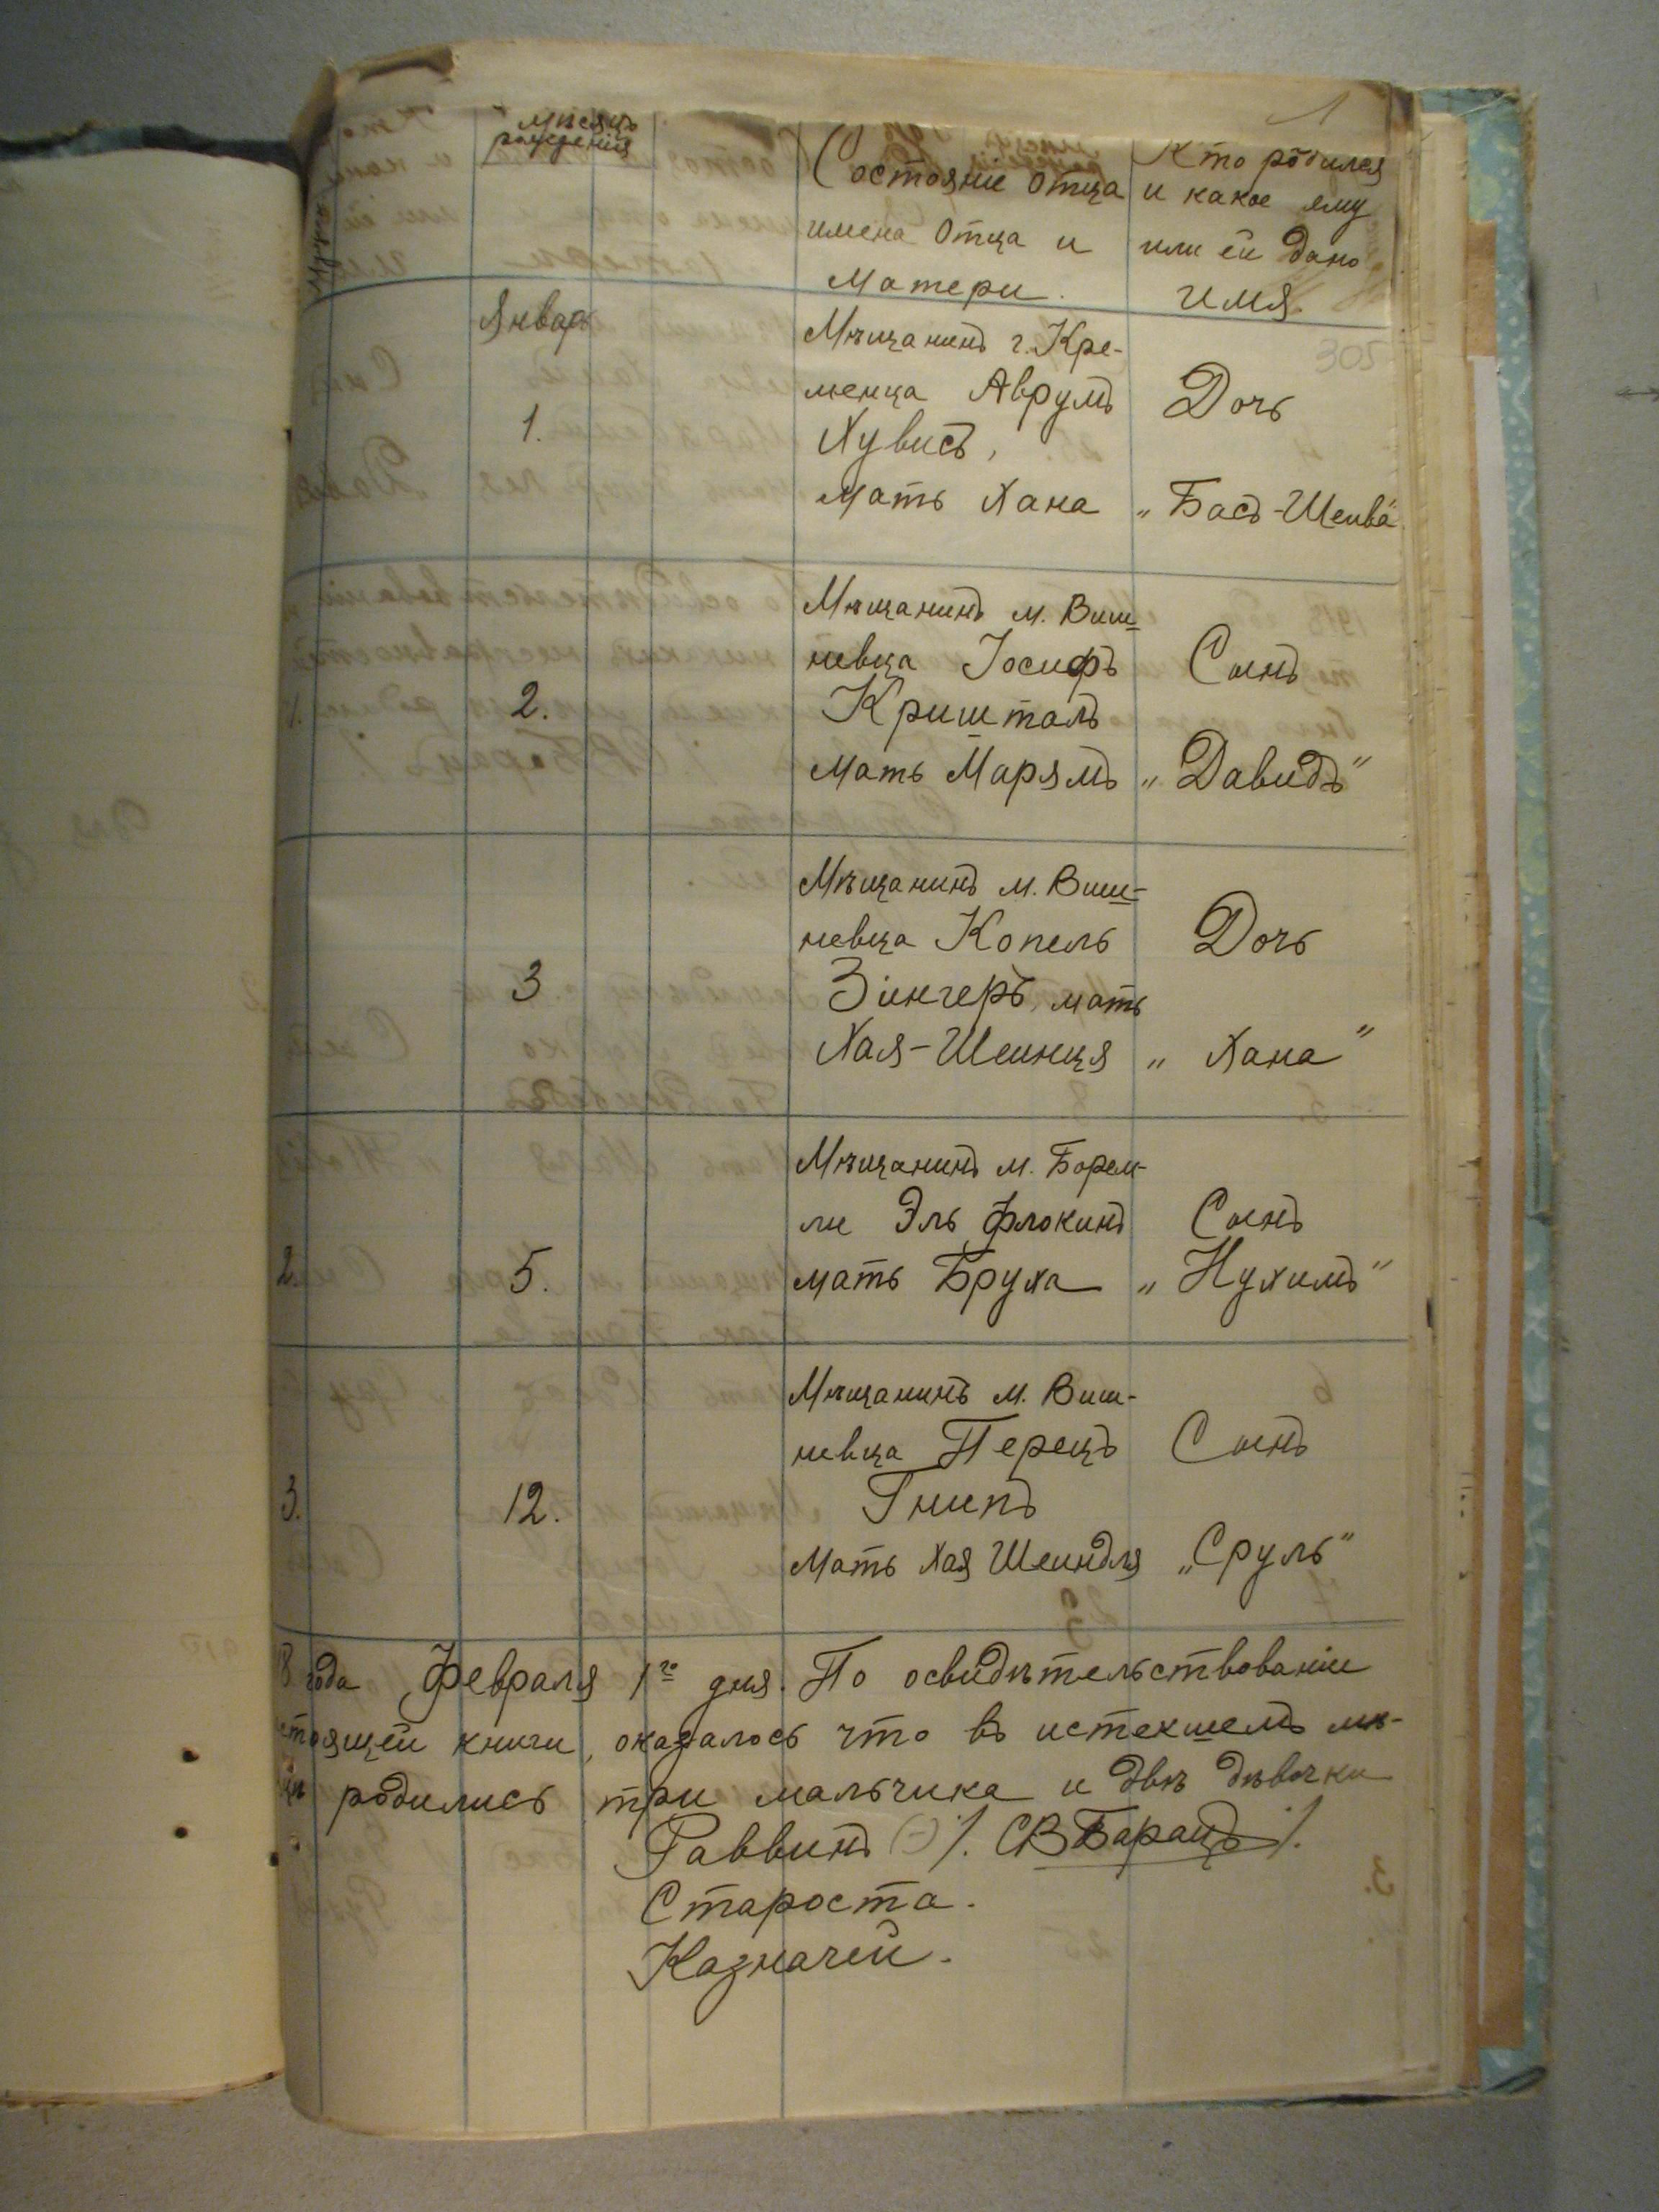 1
Мужск.
мѣсяцъ
рожденія
Состояніе отца
имена отца и
матери.
Кто родился
и какое ему
или ей дано
имя.
305
Январь
1.
Мѣщанинъ г. Кре-
менца Аврумъ
Хувисъ,
мать Хана
Дочь
„Бася-Шейва"
1.
2.
Мѣщанинъ м. Виш-
невца Іосифъ
Кришталь
мать Марямъ
Сынъ
„Давидъ"
3.
Мѣщанинъ м. Виш-
невца Копель
Зингеръ, мать
Хая-Шеинця
Дочь
„Хана"
2.
5.
Мѣщанинъ м. Борем-
ли Эль Флокинъ
мать Бруха
Сынъ
„Нухимъ"
3.
12.
Мѣщанинъ м. Виш-
невца Перецъ
Гнипъ
мать Хая Шеиндля
Сынъ
„Сруль"
8 года Февраля 1го дня. По освидѣтельствованіи
стоящей книги, оказалось что въ истекшемъ мѣ-
цѣ родились три мальчика и двѣ дѣвочки
Раввинъ (-) ./. СВБаранъ ./.
Староста.
Казначей.